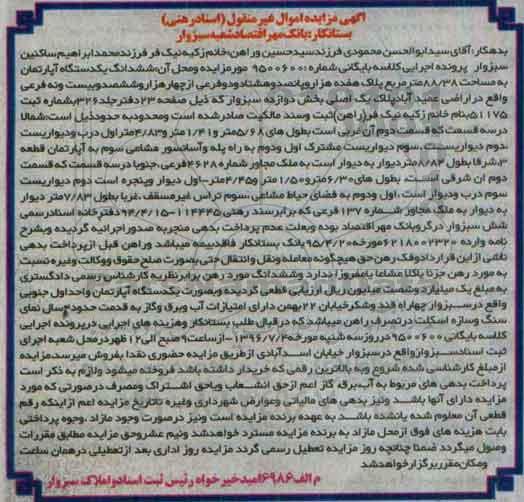 آگهی مزایده اموال غیر منقول (اسناد رهنی)
بستانکار: بانک مهر اقتصاد شعبه سبزوار
بدهکار: آقای سید ابوالحسن محمودی فرزند سید حسین و راهن: خانم زکیه نیک فر فرزند محمد ابراهیم ساکنین
سبزوار پرونده اجرایی کلاسه بایگانی شماره: ۹۵۰۰۶۰۰ مورد مزایده و محل آن: ششدانگ یکدستگاه آپارتمان
به مساحت ۸۸/۳۸ متر مربع پلاک هفده هزار و پانصد و هشتاد و دو فرعی از چهار هزار و ششصد و بیست و نه فرعی
واقع در اراضی عمید آباد پلاک یک اصلی بخش دوازده سبزوار که ذیل صفحه ۲۳ دفتر جلد ۳۲۶ بشماره ثبت
۵۱۱۷۵ بنام خانم زکیه نیک فر (راهن) ثبت و سند مالکیت صادر شده است و محدود به حدود ذیل است: شمالا
در سه قسمت که قسمت دوم آن غربی است بطول های ۵/۶۸ متر و ۱/۴۱ متر و ۴/۸۳ متر اول درب و دیواریست
،دوم دیواریست ،سوم دیواریست مشترک اول و دوم به راه پله و آسانسور مشاعی سوم به آپارتمان قطعه
۳، شرقا بطول ۸/۸۴ متر دیوار به دیوار است به ملک مجاور شماره ۴۶۲۸ فرعی، جنوبا در سه قسمت که قسمت
دوم آن شرقی است، بطول های ۶/۳۰ متر و ۱/۵۰ متر و ۴/۴۵ متر- اول دیوار و پنجره است دوم دیواریست
سوم درب و دیوار است، اول و دوم به فضای حیاط مشاعی، سوم تراس غیر مسقف، غربا بطول ۷/۸۳ متر دیوار
به دیوار به ملک مجاور شماره ۱۳۷ فرعی که برابر سند رهنی ۱۱۴۴۴۵-۹۴/۴/۱۵ دفترخانه اسناد رسمی
شش سبزوار در گرو بانک مهر اقتصاد بوده و بعلت عدم پرداخت بدهی منجر به صدور اجرائیه گردیده و بشرح
نامه وارده ۶۲۱۸۰۰۲۳۲۰ مورخه ۹۵/۴/۲۰ بانک بستانکار فاقد بیمه میباشد و راهن قبل از پرداخت بدهی
ناشی از این قرارداد و فک رهن حق هیچگونه معامله و نقل و انتقال حتی بصورت صلح حقوق و وکالت و غیره نسبت
به مورد رهن جزئا یا کلا مشاعا یا مفروزا ندارد و ششدانگ مورد رهن برابر نظریه کارشناس رسمی دادگستری
به مبلغ یک میلیارد و شصت میلیون ریال ارزیابی قطعی گردیده و بصورت یکدستگاه آپارتمان واحد اول جنوبی
واقع در سبزوار چهار راه قند و شکر خیابان ۲۲ بهمن دارای امتیازات آب و برق و گاز به قدمت حدود سال نمای
سنگ و سازه اسکلت در تصرف راهن میباشد که در قبال طلب بستانکار و هزینه های اجرایی در پرونده اجرایی
کلاسه بایگانی ۹۵۰۰۶۰۰ در روز سه شنبه مورخه ۱۳۹۶/۷/۴ از ساعت ۹ صبح الی ۱۲ ظهر در محل شعبه اجرای
ثبت اسناد سبزوار واقع در سبزوار خیابان اسدآبادی از طریق مزایده حضوری نقدا بفروش میرسد، مزایده
از مبلغ کارشناسی شده شروع و به بالاترین رقمی که خریدار داشته باشد فروخته میشود و لازم به ذکر است
پرداخت بدهی های مربوط به آب، برق، گاز اعم از حق انشعاب و یا حق اشتراک و مصرف در صورتی که مورد
مزایده دارای آنها باشد و نیز بدهی های مالیاتی و عوارض شهرداری و غیره تا تاریخ مزایده اعم از اینکه رقم
قطعی آن معلوم شده یا نشده باشد به عهده برنده مزایده است و نیز در صورت وجود مازاد، وجوه پرداختی
بابت هزینه های فوق از محل مازاد به برنده مزایده مسترد خواهد شد و نیم عشر و حق مزایده مطابق مقررات
وصول میگردد ضمنا چنانچه روز مزایده تعطیل رسمی گردد مزایده روز اداری بعد از تعطیلی در همان ساعت
و مکان مقرر برگزار خواهد شد
م الف ۶۹۸۶ امید خیرخواه رئیس ثبت اسناد و املاک سبزوار